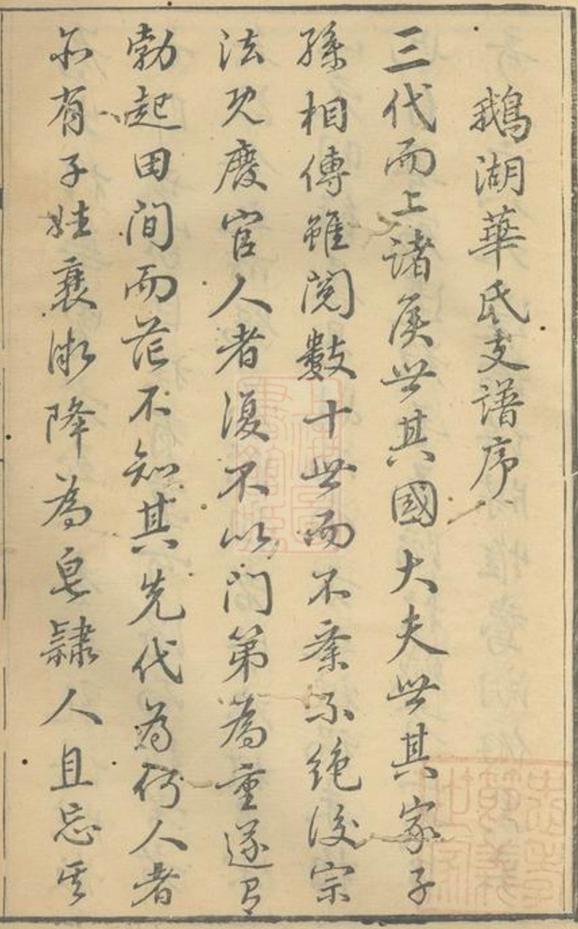 鵝湖華氏支譜序
三代而上諸侯世其國大夫世其家子
孫相傳雖閱數十世而不紊不絕後宗
法既廢官人者復不以門第為重遂有
勃起田間而茫不知其先代為何人者
亦有子姓衰微降為皂隸人且忘其